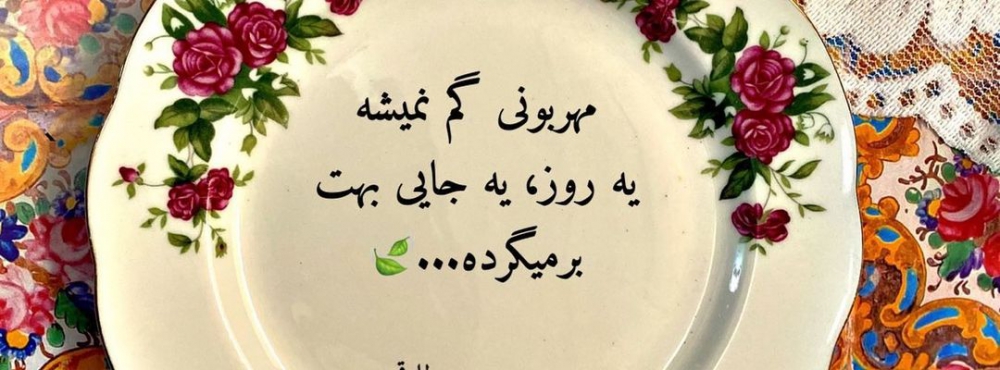 مهربونی گم نمیشه
یه روز، یه جایی بهت
برمیگرده...